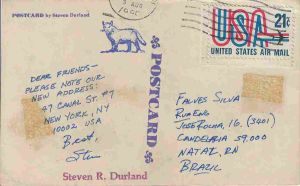 POSTCARD by Steven Durland
AUG
USA 21¢
UNITED STATES AIR MAIL
DEAR FRIENDS—
PLEASE NOTE OUR
NEW ADDRESS:
47 CANAL ST. #7
NEW YORK, NY
10002 USA
Best,
Steve
Steven R. Durland
POSTCARD
FALVES SILVA
RUA ENG
JOSE ROCHA, 16. (3401)
CANDELARIA 59.000
NATAL, RN
BRAZIL